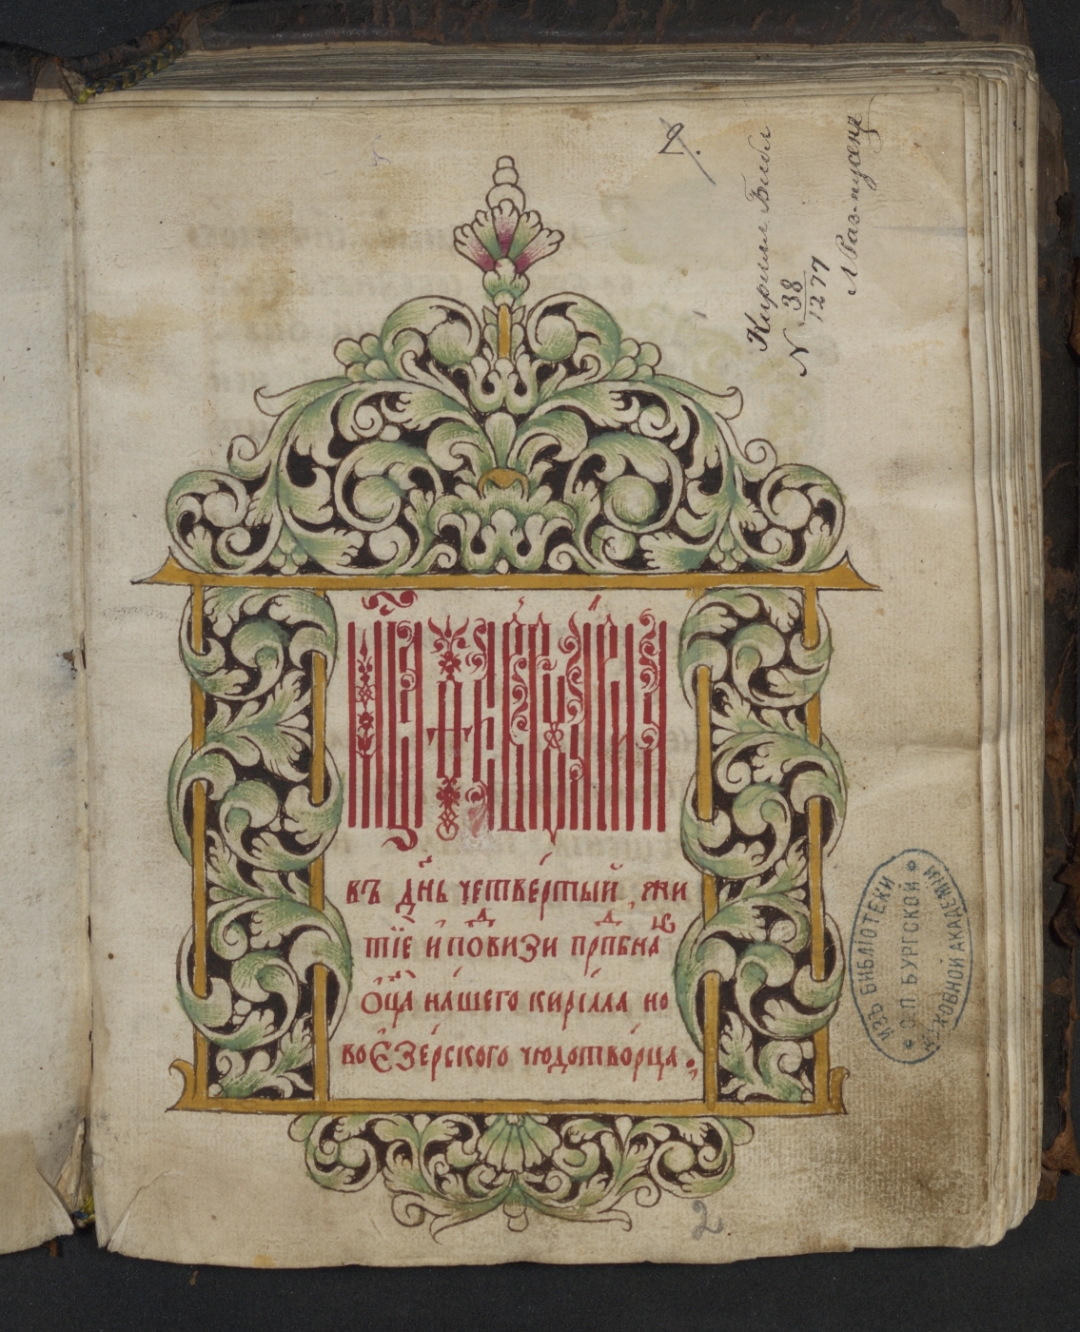 Кирилл. Библ.
N 38
1277
Мц҃а февруарїа
въ дн҃ь четвертый, жи
тїе и поⷣвизи прпⷣбнаⷢ҇
ѻц҃а нашего кирілла но
воєзерского чюдотворца
ИЗЪ БИБЛІОТЕКИ
С. П. БУРГСКОЙ
ДУХОВНОЙ АКАДЕМІИ
2